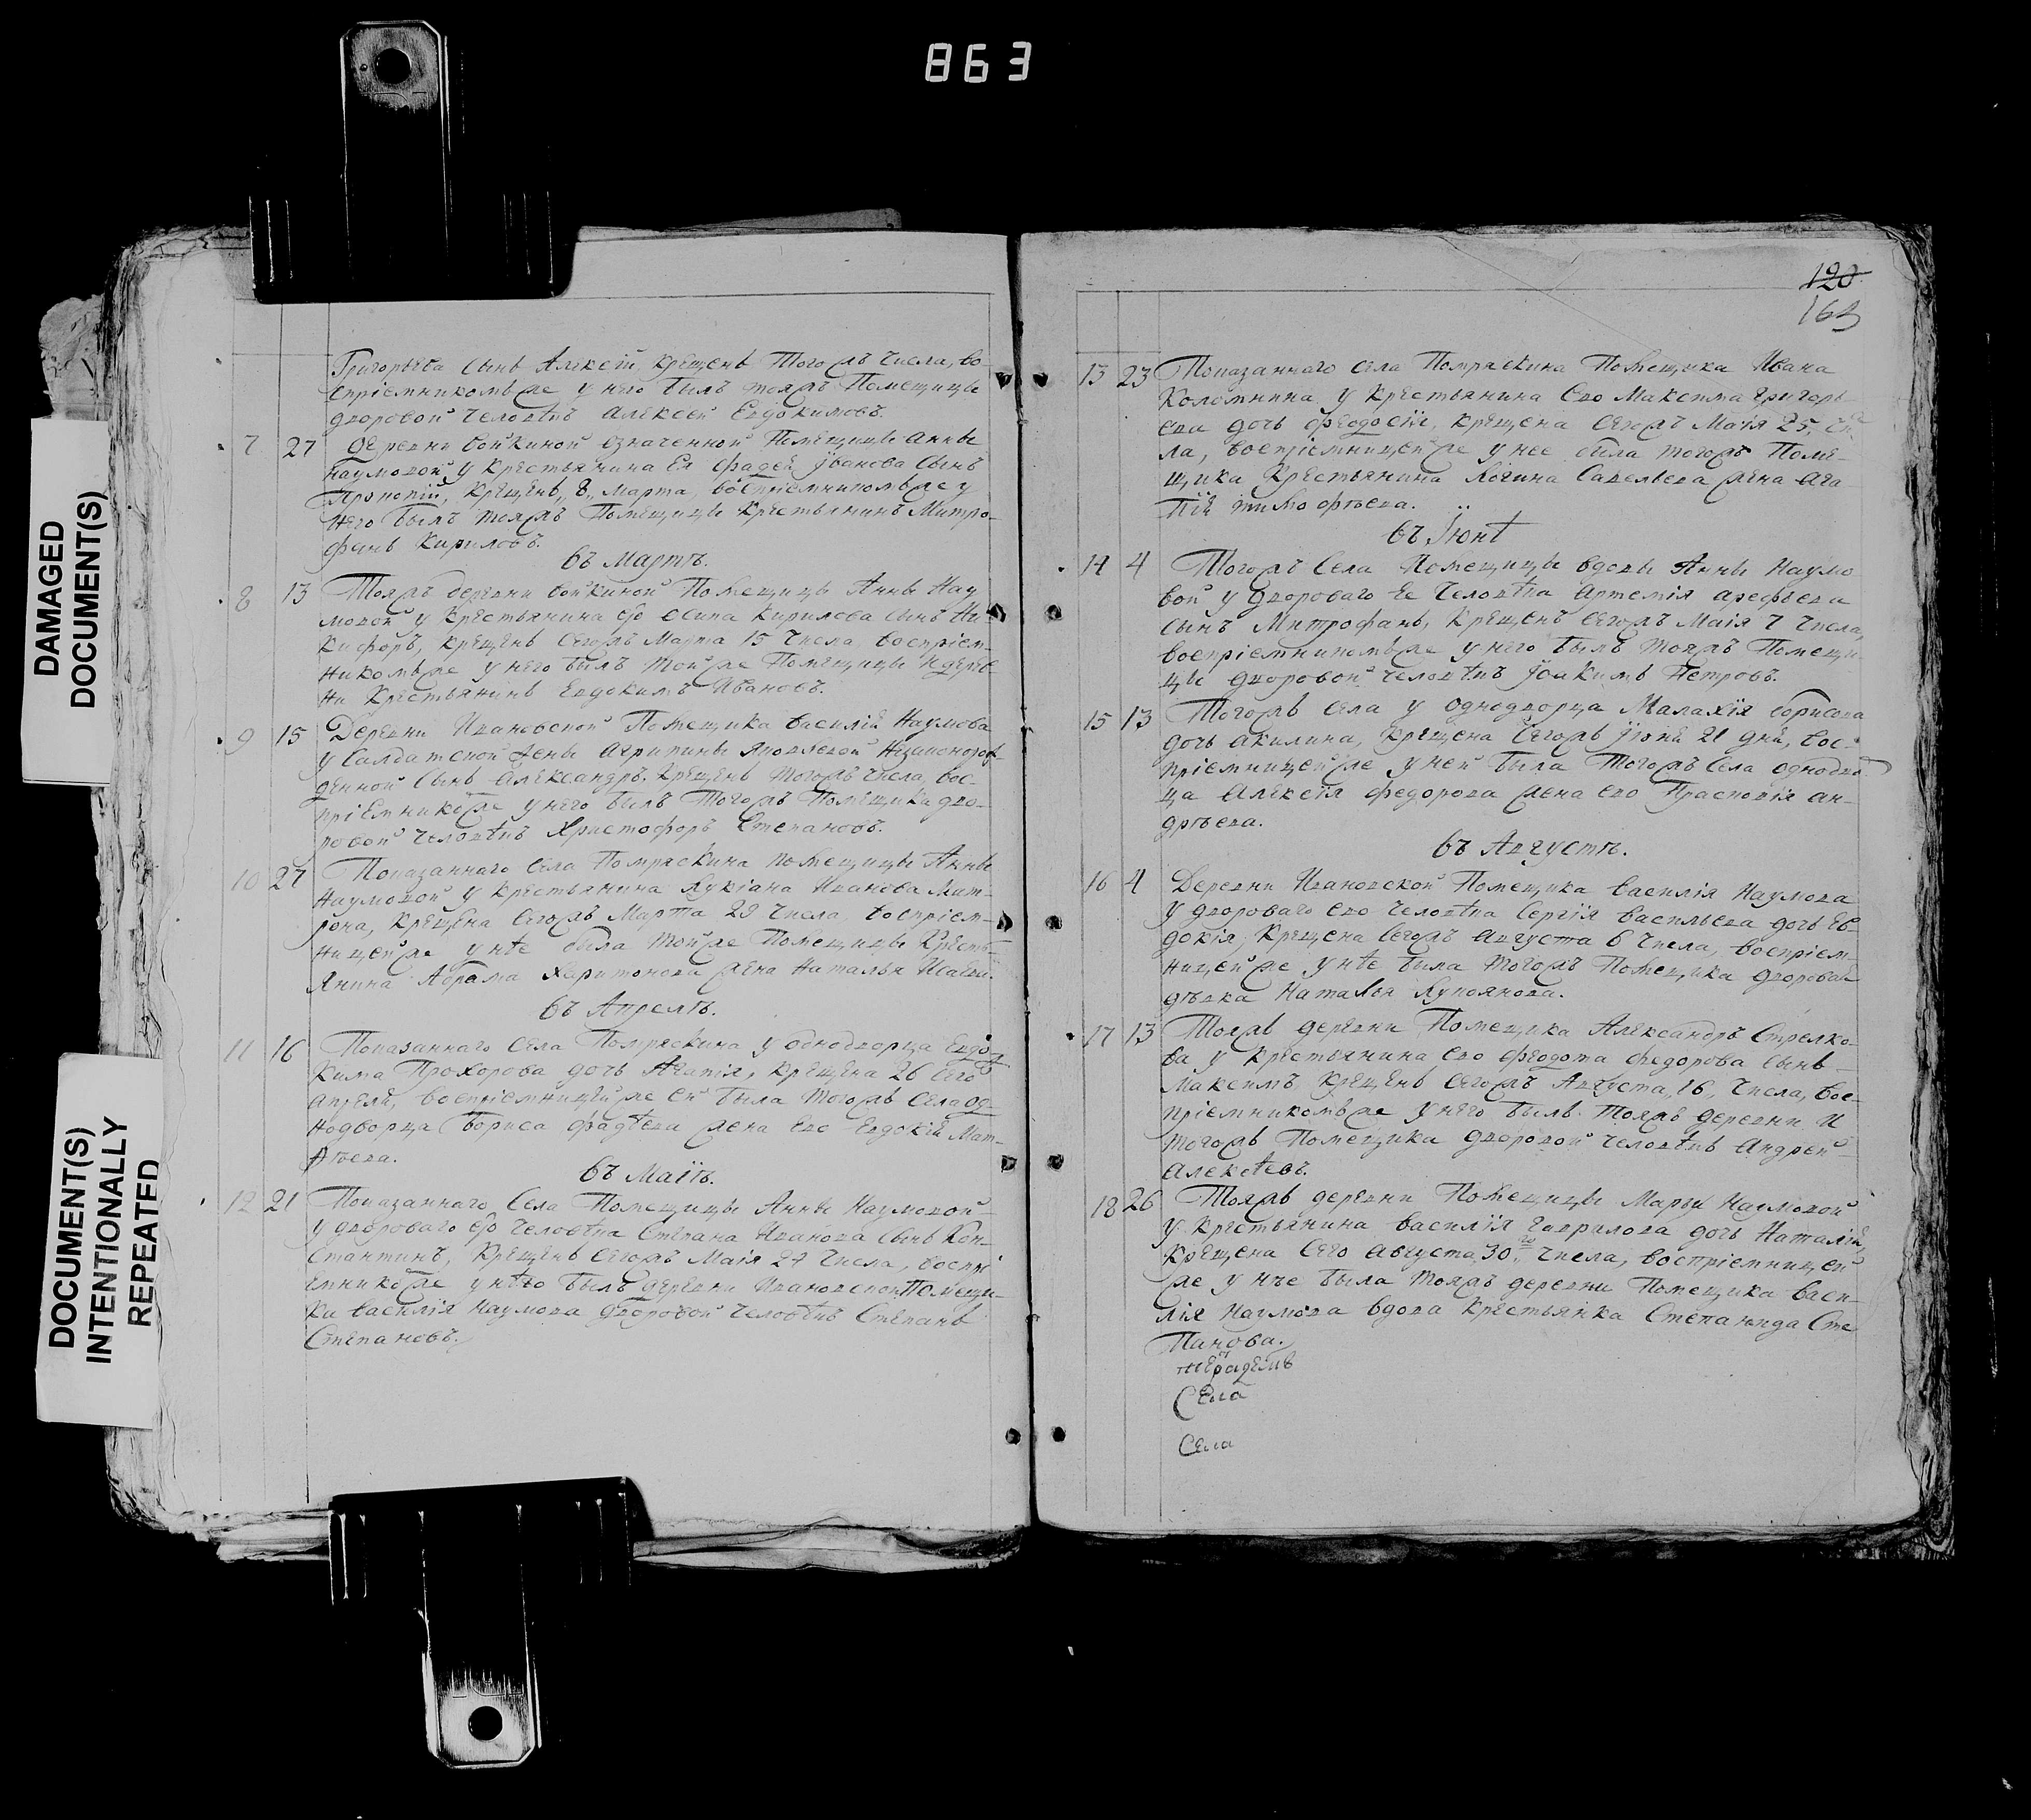 863
DAMAGED
DOCUMENT(S)
DOCUMENT(S)
INTENTIONALLY
REPEATED
Григорьева сынъ Алексей, крещенъ тогожъ числа, во-
спріемникомъже у него былъ тояжъ Помещицы
дворовой человѣкъ Алексей Евдокимовъ.
7 27 Деревни Войкиной означенной Помещицы Анны
Наумовой у крестьянина Ея Фадея Іванова сынъ
Прокопій, крещенъ „8„ марта, воспріемникомъже у
него былъ тояжъ Помещицы крестьянинъ Митро-
фанъ Кириловъ.
Въ Мартѣ.
8 13 Тояжъ деревни Войкиной Помещицы Анны Нау
мовой у крестьянина Ея Осипа Кирилова сынъ Ни-
кифоръ, крещенъ сегожъ Марта 15 числа, воспріем-
никомъже у него былъ тойже Помещицы и дерев-
ни крестьянинъ Евдокимъ Ивановъ.
9 15 Деревни Ивановской Помещика Василія Наумова
у салдатской жены Агрипины Яковлевой незаконорож-
денной сынъ Александръ. крещенъ тогожъ числа, вос-
пріемникомже у него былъ тогожъ Помещика дво-
ровой человѣкъ Христофоръ Степановъ.
10 27 Показаннаго села Помряскина Помещицы Анны
Наумовой у крестьянина Лукіана Иванова Мат-
рона, крещена сегожъ Марта 29 числа, воспріем-
ницейже у нѣе была тойже Помещицы кресть-
янина Абрама Харитонова жена Наталья Исаева.
Въ Апрелѣ.
11 16 Показаннаго села Помряскина у однодворца Евдо-
кима Прохорова дочь Агапія, крещена 26 сего
апреля, воспріемницейже ей была тогожъ села од-
нодворца Бориса Фадѣева жена Ево Евдокія Мат-
фѣева.
Въ Маіѣ.
12 21 Показаннаго села Помещицы Анны Наумовой
у двороваго Ея человѣка Степана Иванова сынъ Кон-
стантинъ, крещенъ сегожъ Маія 27 числа, воспрі
емникомже у него былъ деревни Ивановской Помещи-
ка Василія Наумова дворовой человѣкъ Степанъ
Степановъ.
120
163
13 23 Показаннаго села Помряскина Помещика Ивана
Коломнина у крестьянина Ево Максима Григорь-
ева дочь Феодосія, крещена сегожъ Маія 25, чи
ла, воспріемницейже у нее была тогожъ Поме-
щика крестьянина Логина Савельева жена Ага-
пія Тимофѣева.
Въ Іюнѣ
14 4 Тогожъ села Помещицы вдовы Анны Наумо
вой у двороваго Ее человѣка Артемія Арефьева
сынъ Митрофанъ, крещенъ сегожъ Маія 7 числа,
воспріемникомъже у него былъ тояжъ Помещи-
цы дворовой человѣкъ Іоакимъ Петровъ.
15 13 Тогожъ села у однодворца Малахія Борисова
дочь Акилина, крещена сегожъ Іюня 21 дня, вос-
пріемницейже у ней была тогожъ села однодво
ца Алексія Федорова жена Ево Прасковія Ан-
дрѣева.
Въ Августѣ.
16 4 Деревни Ивановской Помещика Василія Наумова
у двороваго Ево человѣка Сергія Васильева дочь Ев-
докія, крещена сегожъ Августа 6 числа, воспріем-
ницейже у нѣе была тогожъ Помещика дворовая
дѣвка Наталья Лукоянова.
17 13 Тояжъ деревни Помещика Александръ Стрелко-
ва у крестьянина Ево Федота Федорова сынъ
Максимъ, крещенъ сегожъ Августа „16„ числа, вос-
пріемникомъже у него былъ тояжъ деревни и
тогожъ Помещика дворовой человѣкъ Андрей
Алексѣевъ.
18 26 Тояжъ деревни Помещицы Марьи Наумовой
у крестьянина Василія Гаврилова дочь Наталія,
крещена сего Августа „30„го числа, воспріемницей
же у нѣе была тояжъ деревни Помещика Васи-
лія Наумова вдова крестьянка Степанида Сте
панова.
Села
Села